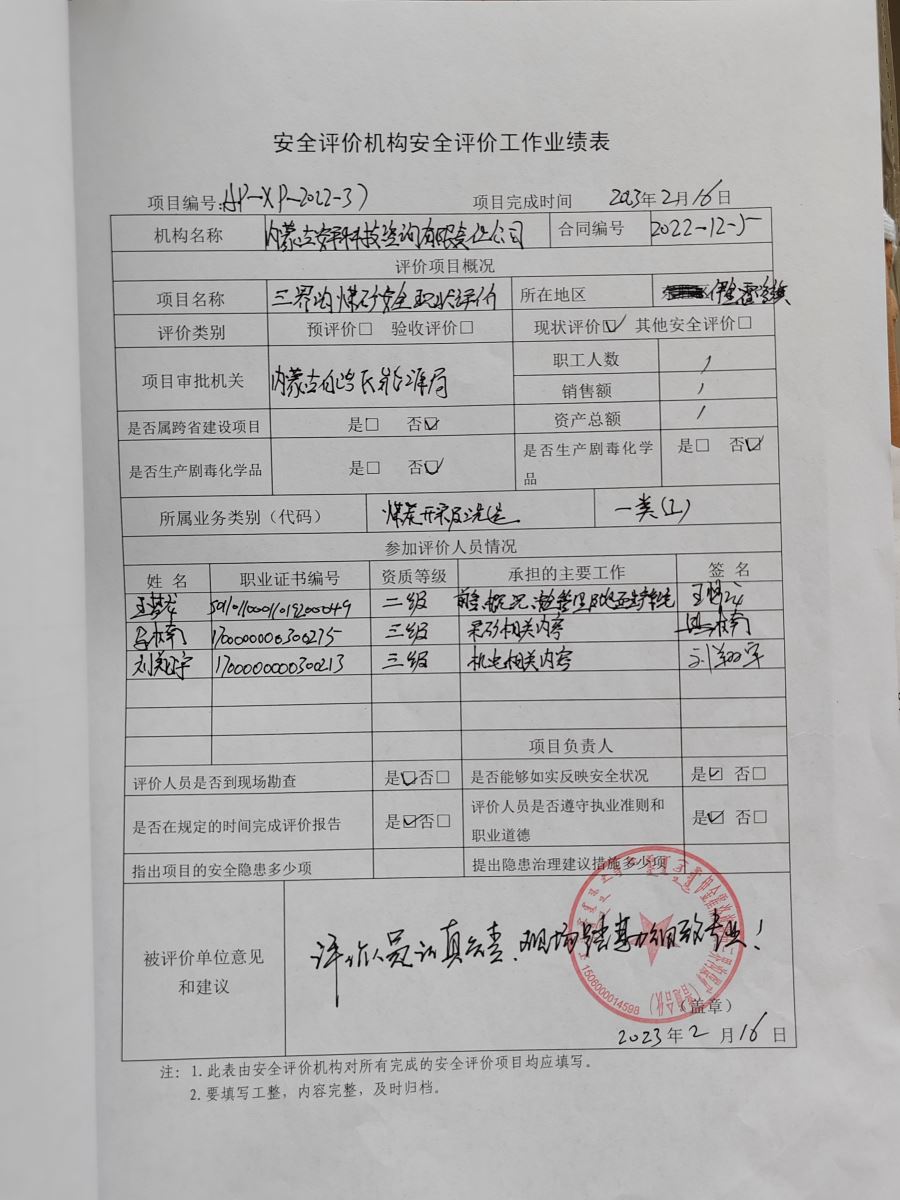 安全评价机构安全评价工作业绩表
项目编号:AP-XP-2022-37 项目完成时间 2023年2月16日
机构名称 内蒙古安科科技咨询有限责任公司 合同编号 2022-12-5
评价项目概况
项目名称 三界沟煤矿安全现状评价 所在地区 伊金霍洛旗
评价类别 预评价□ 验收评价□ 现状评价☑ 其他安全评价□
项目审批机关 内蒙古自治区能源局 职工人数 /
销售额 /
资产总额 /
是否属跨省建设项目 是□ 否☑
是否生产剧毒化学品 是□ 否☑ 是否生产剧毒化学品 是□ 否☑
所属业务类别（代码） 煤炭开采及洗选 一类(1)
参加评价人员情况
姓 名 职业证书编号 资质等级 承担的主要工作 签 名
二级
1700000000300215 三级 采矿相关内容
刘翔宇 1700000000300213 三级 机电相关内容 刘翔宇
项目负责人
评价人员是否到现场勘查 是☑否□ 是否能够如实反映安全状况 是☑ 否□
是否在规定的时间完成评价报告 是☑否□ 评价人员是否遵守执业准则和职业道德 是☑ 否□
指出项目的安全隐患多少项 提出隐患治理建议措施多少项
被评价单位意见和建议
评价人员认真负责、现场
细致专业！
1506000014598
（盖章）
2023年2月16日
注：1.此表由安全评价机构对所有完成的安全评价项目均应填写。
2.要填写工整，内容完整，及时归档。